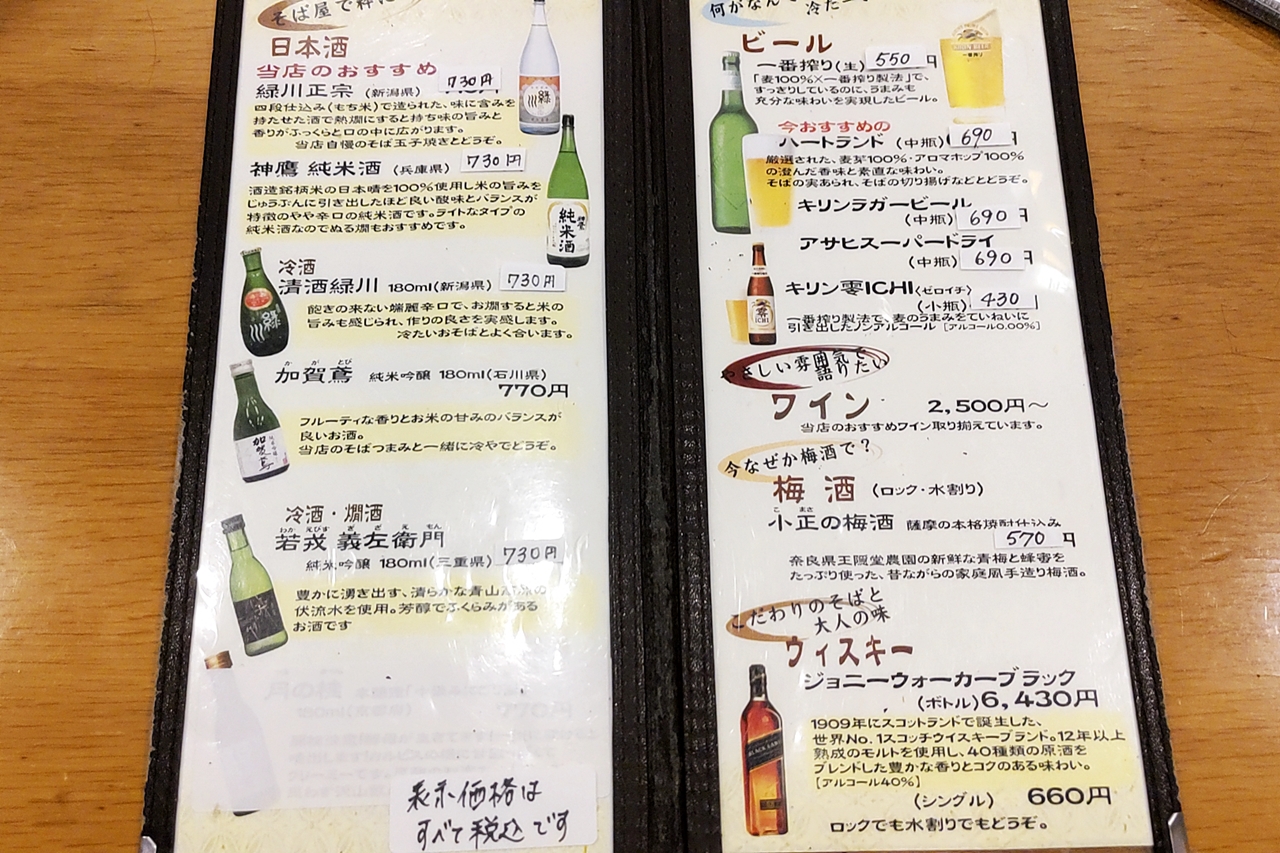 そば屋で粋に
日本酒
当店のおすすめ
緑川正宗 (新潟県) 730円
四段仕込み(もち米)で造られた、味に含みを
持たせた酒で熱燗にすると持ち味の旨みと
香りがふっくらと口の中に広がります。
当店自慢のそば玉子焼きとどうぞ。
神鷹 純米酒 (兵庫県) 730円
酒造銘柄米の日本晴を100%使用し米の旨みを
じゅうぶんに引き出したほど良い酸味とバランスが
特徴のやや辛口の純米酒です。ライトなタイプの
純米酒なのでぬる燗もおすすめです。
冷酒
清酒緑川 180ml(新潟県) 730円
飽きの来ない端麗辛口で、お燗すると米の
旨みも感じられ、作りの良さを実感します。
冷たいおそばとよく合います。
かがとび
加賀鳶 純米吟醸 180ml(石川県)
770円
フルーティな香りとお米の甘みのバランスが
良いお酒。
当店のそばつまみと一緒に冷やでどうぞ。
冷酒・燗酒
わかえびすぎざえもん
若戎 義左衛門
純米吟醸 180ml(三重県) 730円
豊かに湧き出す、清らかな青山
伏流水を使用。芳醇でふくらみがある
お酒です
表示価格は
すべて税込です
何がなんで
ビール
一番搾り(生) 550円
「麦100%×一番搾り製法」で、
すっきりしているのに、うまみも
充分な味わいを実現したビール。
今おすすめの
ハートランド (中瓶) 690
厳選された、麦芽100%・アロマホップ100%
の澄んだ香味と素直な味わい。
そばの実あられ、そばの切り揚げなどとどうぞ。
キリンラガービール
(中瓶) 690円
アサヒスーパードライ
(中瓶) 690円
キリン零ICHI〈ゼロイチ〉
(小瓶) 430
一番搾り製法で、麦のうまみをていねいに
引き出したノンアルコール [アルコール0.00%]
やさしい雰囲気で
語りたい
ワイン 2,500円〜
当店のおすすめワイン取り揃えています。
今なぜか梅酒で?
梅酒 (ロック・水割り)
こまさ
小正の梅酒 薩摩の本格焼酎仕込み
570円
奈良県王隠堂農園の新鮮な青梅と蜂蜜を
たっぷり使った、昔ながらの家庭風手造り梅酒。
こだわりのそばと
大人の味
ウィスキー
ジョニーウォーカーブラック
(ボトル) 6,430円
1909年にスコットランドで誕生した、
世界No.1スコッチウイスキーブランド。12年以上
熟成のモルトを使用し、40種類の原酒を
ブレンドした豊かな香りとコクのある味わい。
[アルコール40%]
(シングル) 660円
ロックでも水割りでもどうぞ。